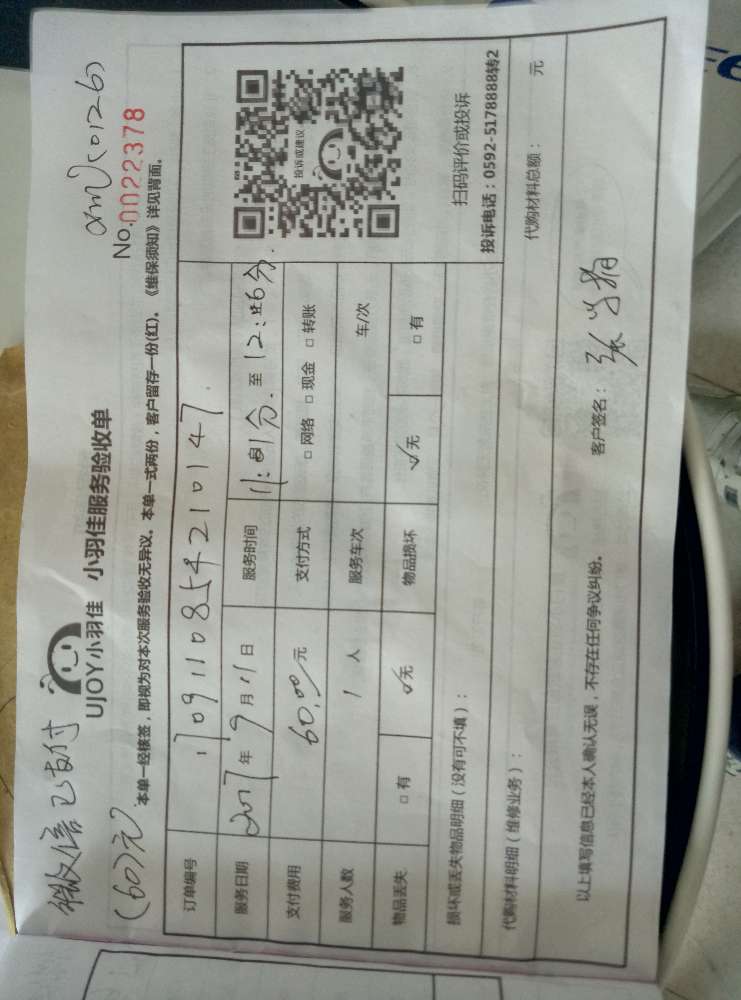 微信已支付
(60)元
UJOY小羽佳 小羽佳服务验收单
No.0022378
本单一经核签，即视为对本次服务验收无异议。本单一式两份，客户留存一份(红)。《维保须知》详见背面。
订单编号 1709110854210147
服务日期 2017年9月11日 服务时间 至12:46分
支付费用 60.00元 支付方式 □网络 □现金 □转账
服务人数 1人 服务车次 车/次
物品丢失 □有 ☑无 物品损坏 ☑无 □有
投诉或建议
扫码评价或投诉
投诉电话：0592-5178888转2
损坏或丢失物品明细（没有可不填）：
代购材料明细（维修业务）： 代购材料总额： 元
以上填写信息已经本人确认无误，不存在任何争议纠纷。 客户签名：